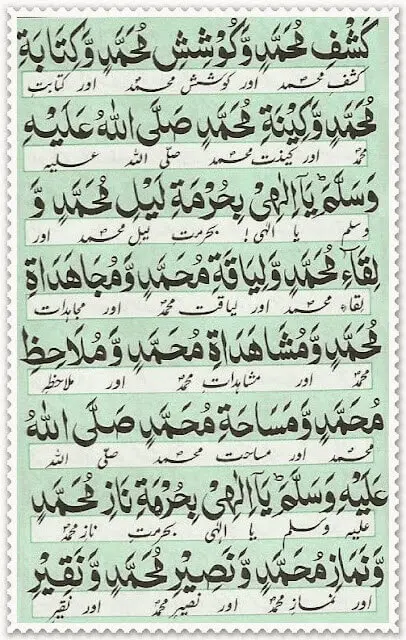 كَشْفِ مُحَمَّدٍ وَّكُوْشِشِ مُحَمَّدٍ وَّكِتَابَةِ
کشف محمدؐ اور کوشش محمدؐ اور کتابت
مُحَمَّدٍ وَّكَيْنَةِ مُحَمَّدٍ صَلَّى اللهُ عَلَيْهِ
محمدؐ اور کینت محمد صلّی اللہ علیہ
وَسَلَّمَ يَآ اِلٰهِىْ بِحُرْمَةِ لَيْلِ مُحَمَّدٍ وَّ
وسلم یا الٰہی! بحرمت لیل محمد اور
لِقَآءِ مُحَمَّدٍ وَّلِيَاقَةِ مُحَمَّدٍ وَّمُجَاهَدَاةِ
لقاء محمد اور لیاقت محمدؐ اور مجاہدات
مُحَمَّدٍ وَّمُشَاهَدَاةِ مُحَمَّدٍ وَّمُلَاحِظِ
محمدؐ اور مشاہدات محمدؐ اور ملاحظہ
مُحَمَّدٍ وَّمَسَاحَةِ مُحَمَّدٍ صَلَّى اللهُ
محمد اور مساحت محمد صلّی اللہ
عَلَيْهِ وَسَلَّمَ يَآ اِلٰهِىْ بِحُرْمَةِ نَازِ مُحَمَّدٍ
علیہ وسلم یا الٰہی بحرمت ناز محمدؐ
وَّنَمَازِ مُحَمَّدٍ وَّنَصِيْرِ مُحَمَّدٍ وَّنَقِيْرِ
اور نماز محمدؐ اور نصیر محمدؐ اور نقیر